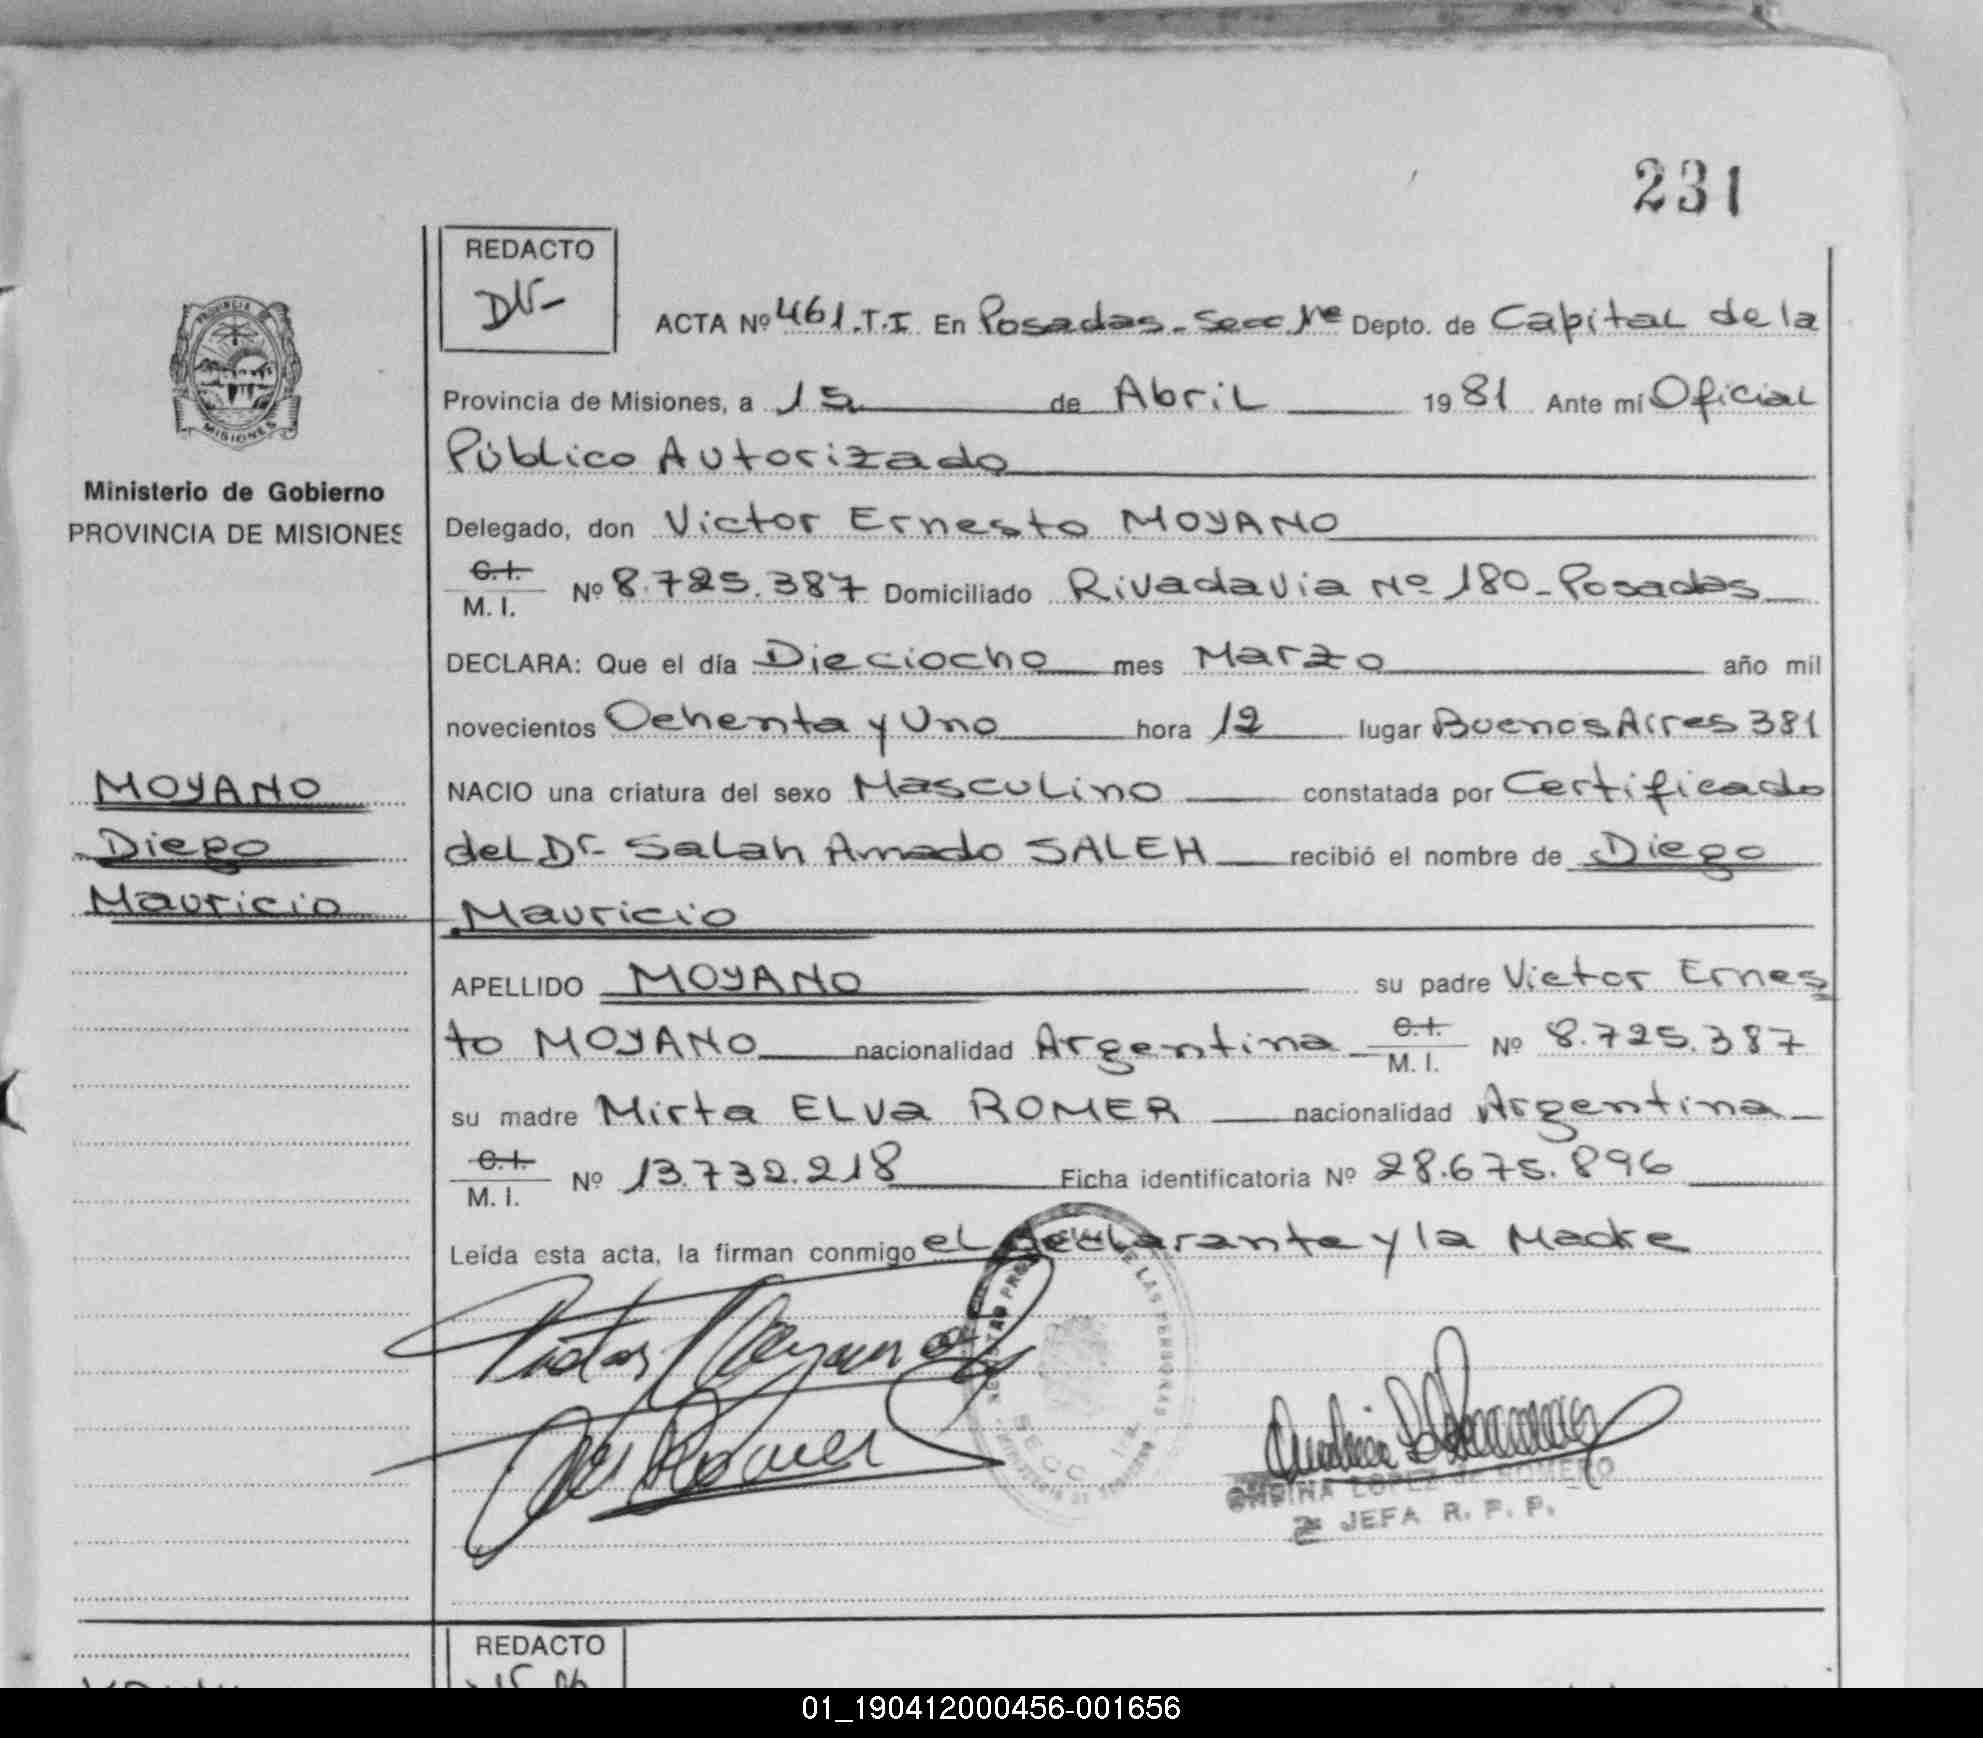 231
REDACTO
ACTA Nº 461.T.I En Posadas-Secc 1ra Depto. de Capital de la
PROVINCIA DE
MISIONES
Provincia de Misiones, a 15 de Abril 1981 Ante mí Oficial
Público Autorizado
Ministerio de Gobierno
PROVINCIA DE MISIONES
Delegado, don Victor Ernesto MOYANO
C.I.
M. I. Nº 8.725.387 Domiciliado Rivadavia Nº 180-Posadas
DECLARA: Que el día Dieciocho mes Marzo año mil
novecientos Ochenta y Uno hora 12 lugar Buenos Aires 381
MOYANO
Diego
Mauricio
NACIO una criatura del sexo Masculino constatada por Certificado
del Dr Salah Amado SALEH recibió el nombre de Diego
Mauricio
APELLIDO MOYANO su padre Victor Ernes
to MOYANO nacionalidad Argentina C.I.
M. I. Nº 8.725.387
su madre Mirta ELva ROMER nacionalidad Argentina
C.I.
M. I. Nº 13.732.218 Ficha identificatoria Nº 28.675.896
Leída esta acta, la firman conmigo el declarante y la Madre
DE LAS PERSONAS
SECC 1ra
LOPEZ de ROMERO
JEFA R. P. P.
REDACTO
01_190412000456-001656